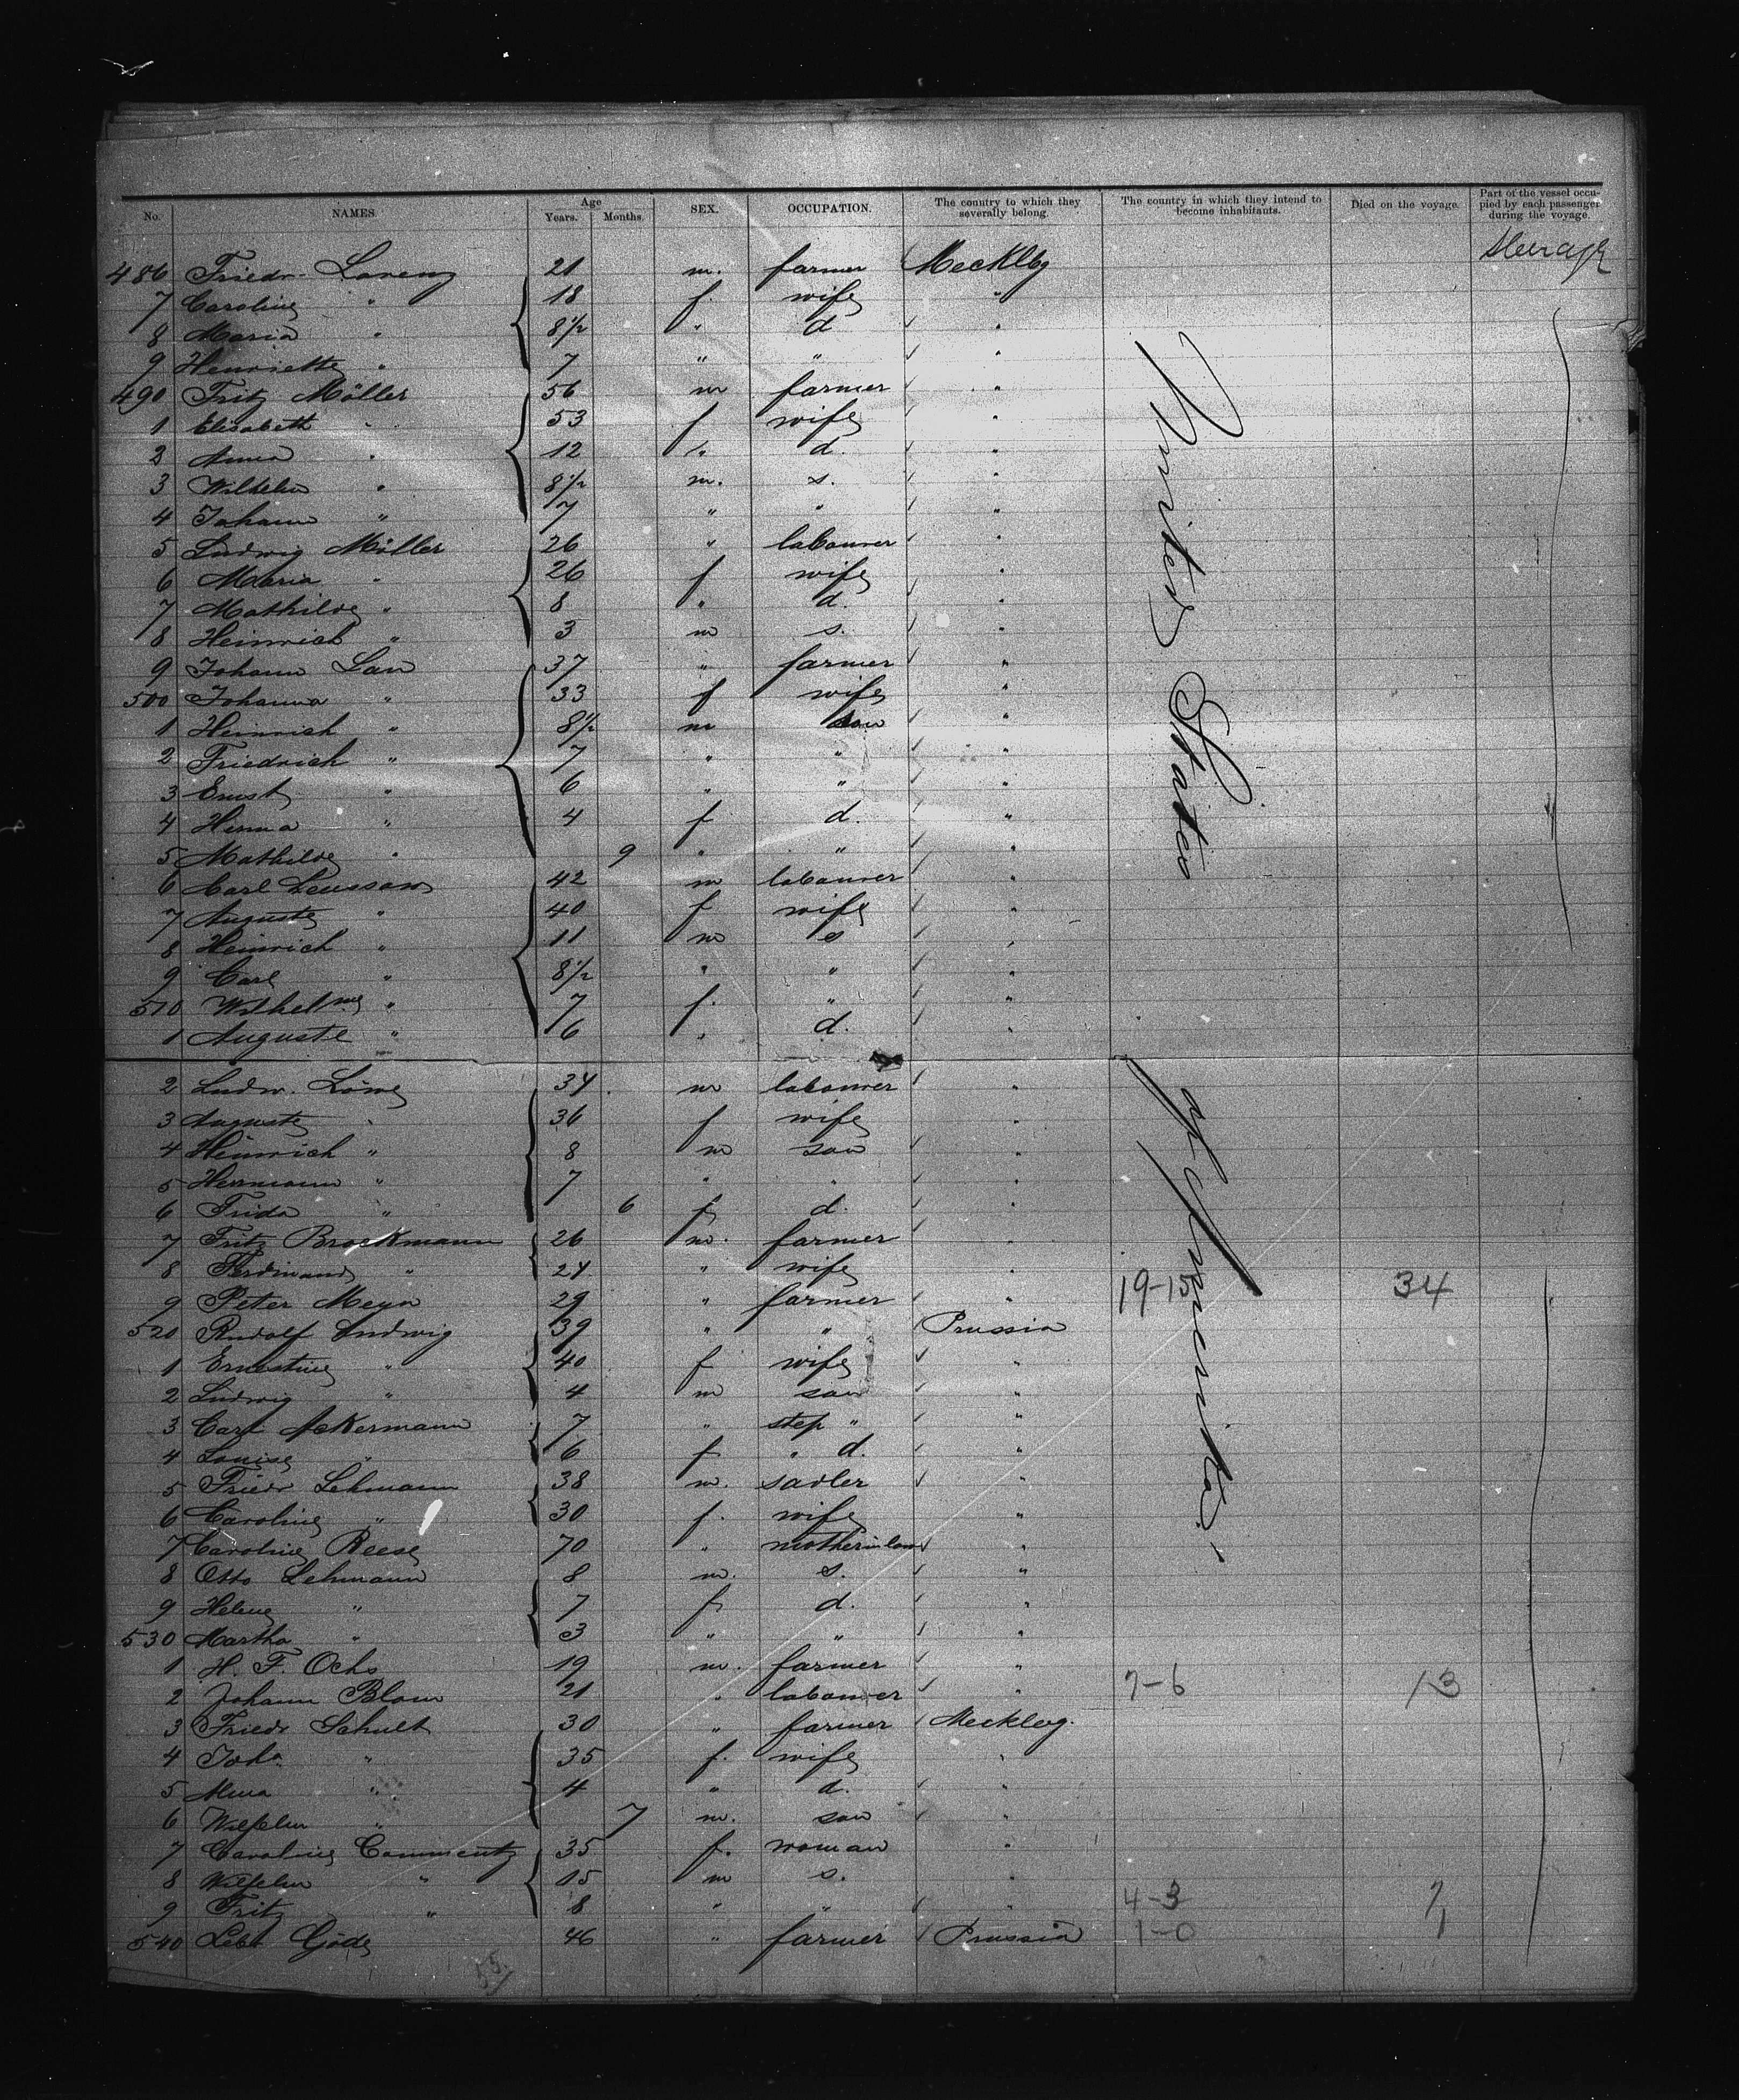 No. NAMES. Age Years. Months. SEX. OCCUPATION. The country to which they severally belong. The country in which they intend to become inhabitants. Died on the voyage. Part of the vessel occupied by each passenger during the voyage.
486 Friedr. Lorenz 21 m. farmer Mecklbg Steerage
7 Caroline " 18 f. wife "
8 Maria " 8 1/2 " d "
9 Henriette " 7 " " "
490 Fritz Möller 56 m farmer "
1 Elisabeth " 53 f wife "
2 Anna " 12 " d. "
3 Wilhelm " 8 1/2 m. s. "
4 Johann " 7 " " "
5 Ludwig Möller 26 " labourer "
6 Maria " 26 f wife "
7 Mathilde " 8 " d. "
8 Heinrich " 3 m s. "
9 Johann Lau 37 " farmer "
500 Johanna " 33 f wife "
1 Heinrich " 8 1/2 m son "
2 Friedrich " 7 " " "
3 Ernst " 6 " " "
4 Herma " 4 f d. "
5 Mathilde " 9 " " "
6 Carl 42 m labourer "
7 Auguste " 40 f wife "
8 Heinrich " 11 m s "
9 Carl " 8 1/2 " " "
510 Wilhelmne " 7 f. " "
1 Auguste " 6 " d. "
United States of America.
2 Ludw. Löwe 34 m labourer "
3 Auguste " 36 f wife "
4 Heinrich " 8 m son "
5 Hermann " 7 " " "
6 Frida " 6 f d. "
7 Fritz Brockmann 26 m. farmer "
8 Ferdinand " 24 " wife "
9 Peter Meyn 29 " farmer " 19-15 34
520 Rudolf Ludwig 39 " " Prussia
1 Ernestine " 40 f wife "
2 Ludwig " 4 m son "
3 Carl Ackermann 7 " step " "
4 Louise " 6 f " d. "
5 Friedr Lehmann 38 m. sadler "
6 Caroline " 30 f. wife "
7 Caroline Reese 70 " mother in law "
8 Otto Lehmann 8 m. s. "
9 Helene " 7 f d. "
530 Martha " 3 " " "
1 H. F. Ochs 19 m. farmer "
2 Johann Blom 21 " labourer " 7-6 13
3 Friedr Schult 30 " farmer Mecklbg.
4 Joha " 35 f. wife "
5 " 4 " d. "
6 Wilhelm " 7 m. son "
7 Caroline Commentz 35 f. woman "
8 Wilhelm " 15 m s. "
9 Fritz " 8 " " " 4-3 7
540 Lebr Göde 46 " farmer Prussia 1-0 1
55